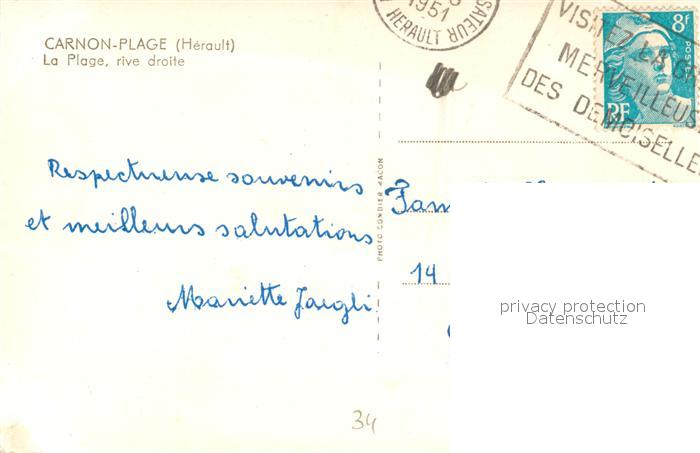 CARNON-PLAGE (Hérault)
La Plage, rive droite
1951
HERAULT
VISITEZ LA G
MERVEILLEUS
DES DEMOISELLE
8F
POSTES
RF
Respectueuse souvenirs
et meilleurs salutations
Mariette Jaegli
PHOTO COMBIER MACON
Fam
14
privacy protection
Datenschutz
34